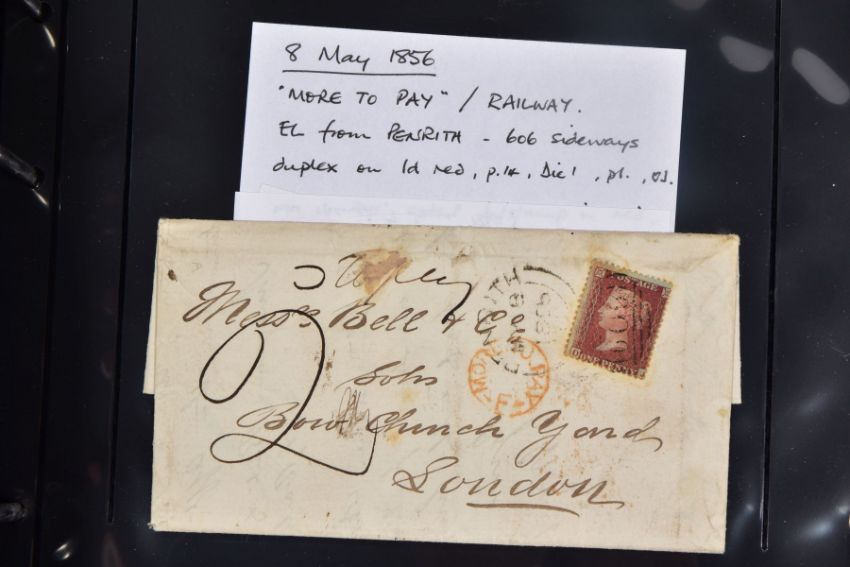 8 May 1856
"MORE TO PAY" / RAILWAY.
EL from PENRITH - 606 sideways
duplex on 1d red, p.14, Die 1, pl.
Mess's Bell & Co
Solrs
Bow Church Yard
London
2
PENRITH
MY 8
1856
MORE TO PAY
F
POSTAGE
ONE PENNY